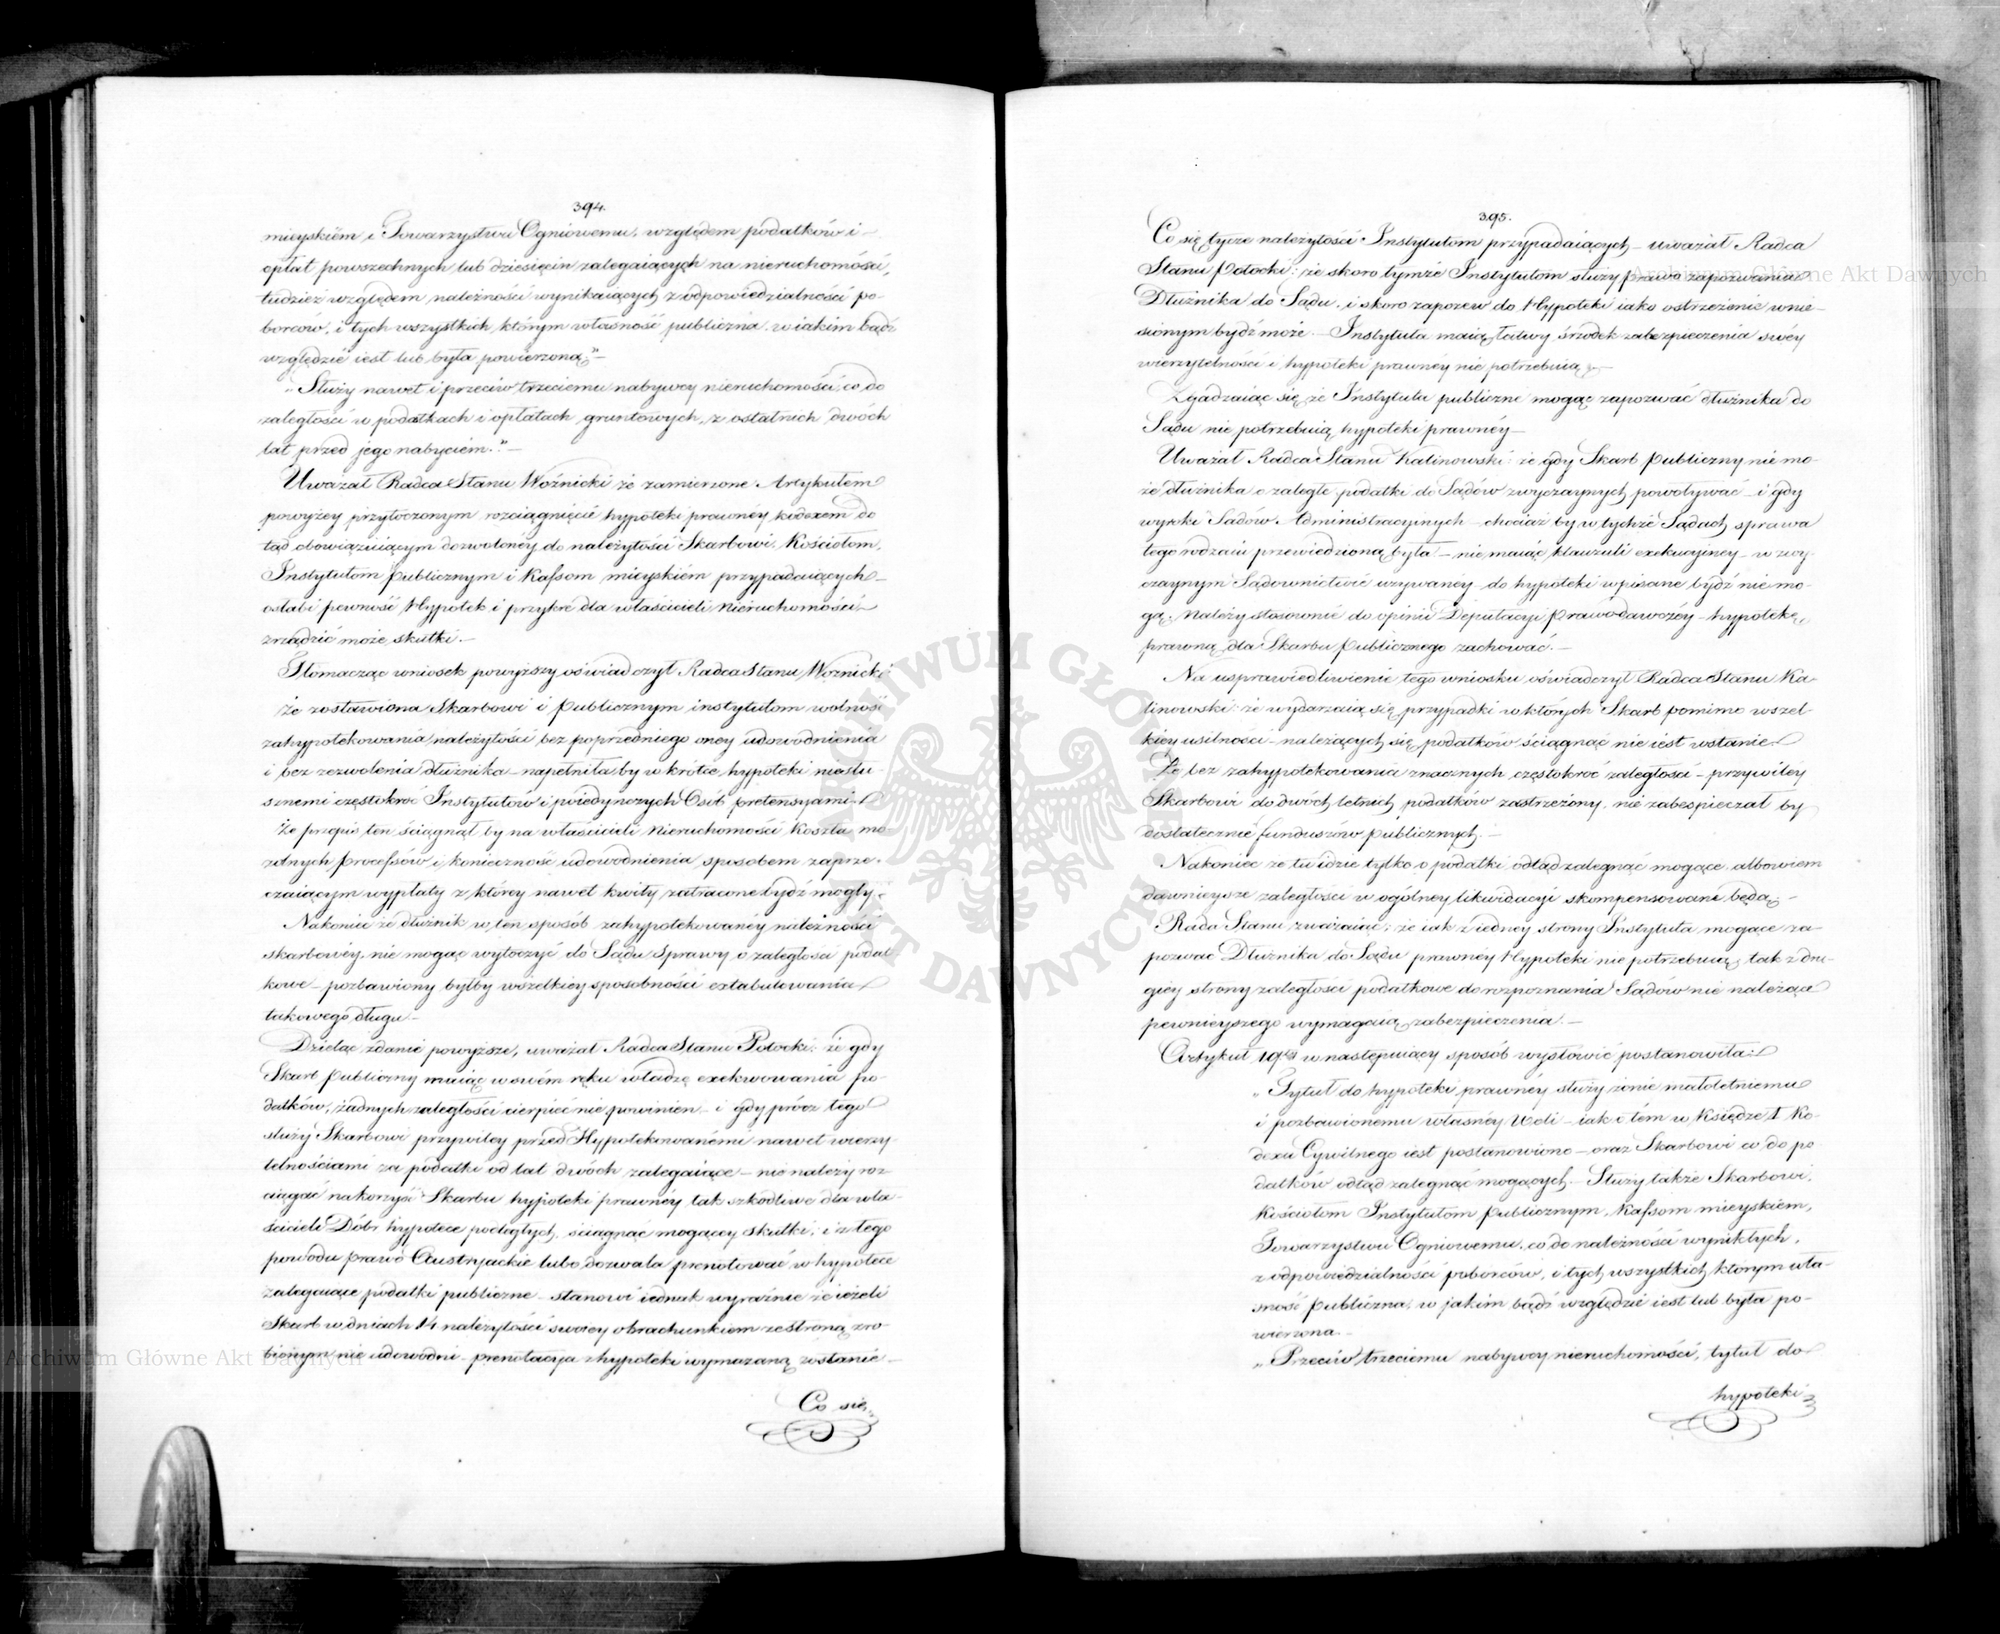 394.
mieyskiém i Towarzystwu Ogniowemu, względem podatków i
opłat powszechnych lub dziesięcin zalegaiących na nieruchomości,
tudzież względem należności wynikaiących z odpowiedzialności po-
borców, i tych wszystkich którym własność publiczna w iakim bądź
względzie iest lub była powierzoną"—
„Służy nawet i przeciw trzeciemu nabywcy nieruchomości, co do
zaległości w podatkach i opłatach gruntowych, z ostatnich dwóch
lat przed jego nabyciem."—
Uważał Radca Stanu Woźnicki że zamierzone Artykułem
powyżey przytoczonym rozciągnięcie hypoteki prawney kodexem do
tąd obowiązuiącym dozwoloney do należytości Skarbowi, Kościołom,
Instytutom Publicznym i Kassom mieyskiém przypadaiących—
osłabi pewność Hypotek i przykre dla właścicieli Nieruchomości
zrządzić może skutki.—
Tłomacząc wniosek powyższy oświadczył Radca Stanu Woźnicki
że zostawiona Skarbowi i publicznym instytutom wolność
zahypotekowania należytości bez poprzedniego oney udowodnienia
i bez zezwolenia dłużnika—napełniłaby w krótce hypoteki niesłu-
sznemi częstokroć Instytutów i poiedynczych Osób pretensyami.
Że przepis ten ściągnął by na właścicieli Nieruchomości koszta mo-
zolnych processów i konieczność udowodnienia sposobem zaprze-
czaiącym wypłaty z którey nawet kwity zatracone bydź mogły.
Nakoniec że dłużnik w ten sposób zahypotekowaney należności
skarbowéy, nie mogąc wytoczyć do Sądu Sprawy o zaległości podat-
kowe—pozbawiony byłby wszelkiey sposobności extabulowania
takowego długu—
Dzieląc zdanie powyższe, uważał Radca Stanu Potocki: że gdy
Skarb publiczny maiąc w swém ręku władzę exekwowania po-
datków, żadnych zaległości cierpieć nie powinien—i gdy prócz tego
służy Skarbowi przywiley przed Hypotekowanémi nawet wierzy-
telnościami za podatki od lat dwóch zalegaiące—nie należy roz-
ciągać na korzyść Skarbu hypoteki prawnéy tak szkodliwe dla wła-
ścicieli Dóbr hypotece podległych, ściągnąć mogącey skutki; i z tego
powodu prawo Austryackie lubo dozwala prenotować w hypotece
zalegaiące podatki publiczne—stanowi iednak wyraźnie że ieżeli
Skarb w dniach 14 należytości swoiey obrachunkiem ze stroną zro-
bionym nie udowodni—prenotacya z hypoteki wymazaną zostanie—
Co się
395.
Co się tycze należytości Instytutom przypadaiących—uważał Radca
Stanu Potocki: że skoro tymże Instytutom służy prawo zapozwania
Dłużnika do Sądu, i skoro zapozew do Hypoteki iako ostrzeżenie wnie-
sionym bydź może.—Instytuta maią łatwy środek zabezpieczenia swéy
wierzytelności i hypoteki prawnéy nie potrzebuią—
Zgadzaiąc się że Instytuta publiczne mogąc zapozwać dłużnika do
Sądu nie potrzebuią hypoteki prawnéy—
Uważał Radca Stanu Kalinowski: że gdy Skarb publiczny nie mo-
że dłużnika o zaległe podatki do Sądów zwyczaynych powoływać—i gdy
wyroki Sądów Administracyinych—chociaż by w tychże Sądach sprawa
tego rodzaiu przewiedzioną była—nie maiąc klauzuli exekucyiney—w zwy-
czaynym Sądownictwie używanéy—do hypoteki wpisane bydź nie mo-
gą. Należy stosownie do opinii Deputacyi Prawodawczéy—hypotekę
prawną dla Skarbu Publicznego zachować.—
Na usprawiedliwienie tego wniosku oświadczył Radca Stanu Ka-
linowski: że wydarzaią się przypadki w których Skarb pomimo wszel-
kiéy usilności—należących się podatków ściągnąć nie iest wstanie.
Że bez zahypotekowania znacznych częstokroć zaległości—przywiley
Skarbowi do dwóch letnich podatków zastrzeżony, nie zabespieczał by
dostatecznie funduszów publicznych.—
Nakoniec że tu idzie tylko o podatki odtąd zalegnąć mogące, albowiem
dawnieysze zaległości w ogólney likwidacyi skompensowane będą—
Rada Stanu zważaiąc: że iak z iedney strony Instytuta mogące za-
pozwać Dłużnika do Sądu prawnéy Hypoteki nie potrzebuią, tak z dru-
giéy strony zaległości podatkowe do rozpoznania Sądów nie należąca
pewnieyszego wymagaią zabezpieczenia.—
Artykuł 19ty w następuiący sposób wysłowić postanowiła:
„Tytuł do hypoteki prawnéy służy żonie małoletniemu
i pozbawionemu własnéy Woli—iak o tém w Księdze I Ko-
dexu Cywilnego iest postanowiono—oraz Skarbowi co do po-
datków odtąd zalegnąć mogących.—Służy także Skarbowi,
Kościołom Instytutom publicznym, Kassom mieyskiém,
Towarzystwu Ogniowemu, co do należności wynikłych,
z odpowiedzialności poborców, i tych wszystkich którym wła-
sność publiczna, w jakim bądź względzie iest lub była po-
wierzona.—
„Przeciw trzeciemu nabywcy nieruchomości, tytuł do
hypoteki
Archiwum Główne Akt Dawnych
Archiwum Główne Akt Dawnych
ARCHIWUM GŁÓWNE AKT DAWNYCH